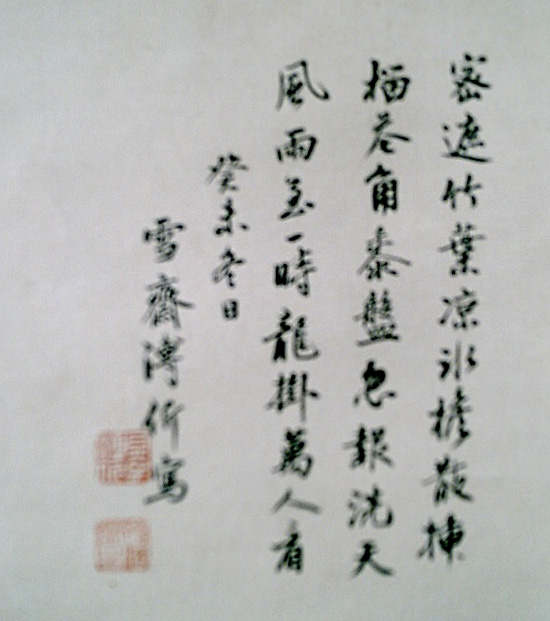 密遮竹葉凉冰檐散
角黍盤忽報洗天
風雨至一時龍掛萬人看
癸未冬日
雪齋溥伒寫